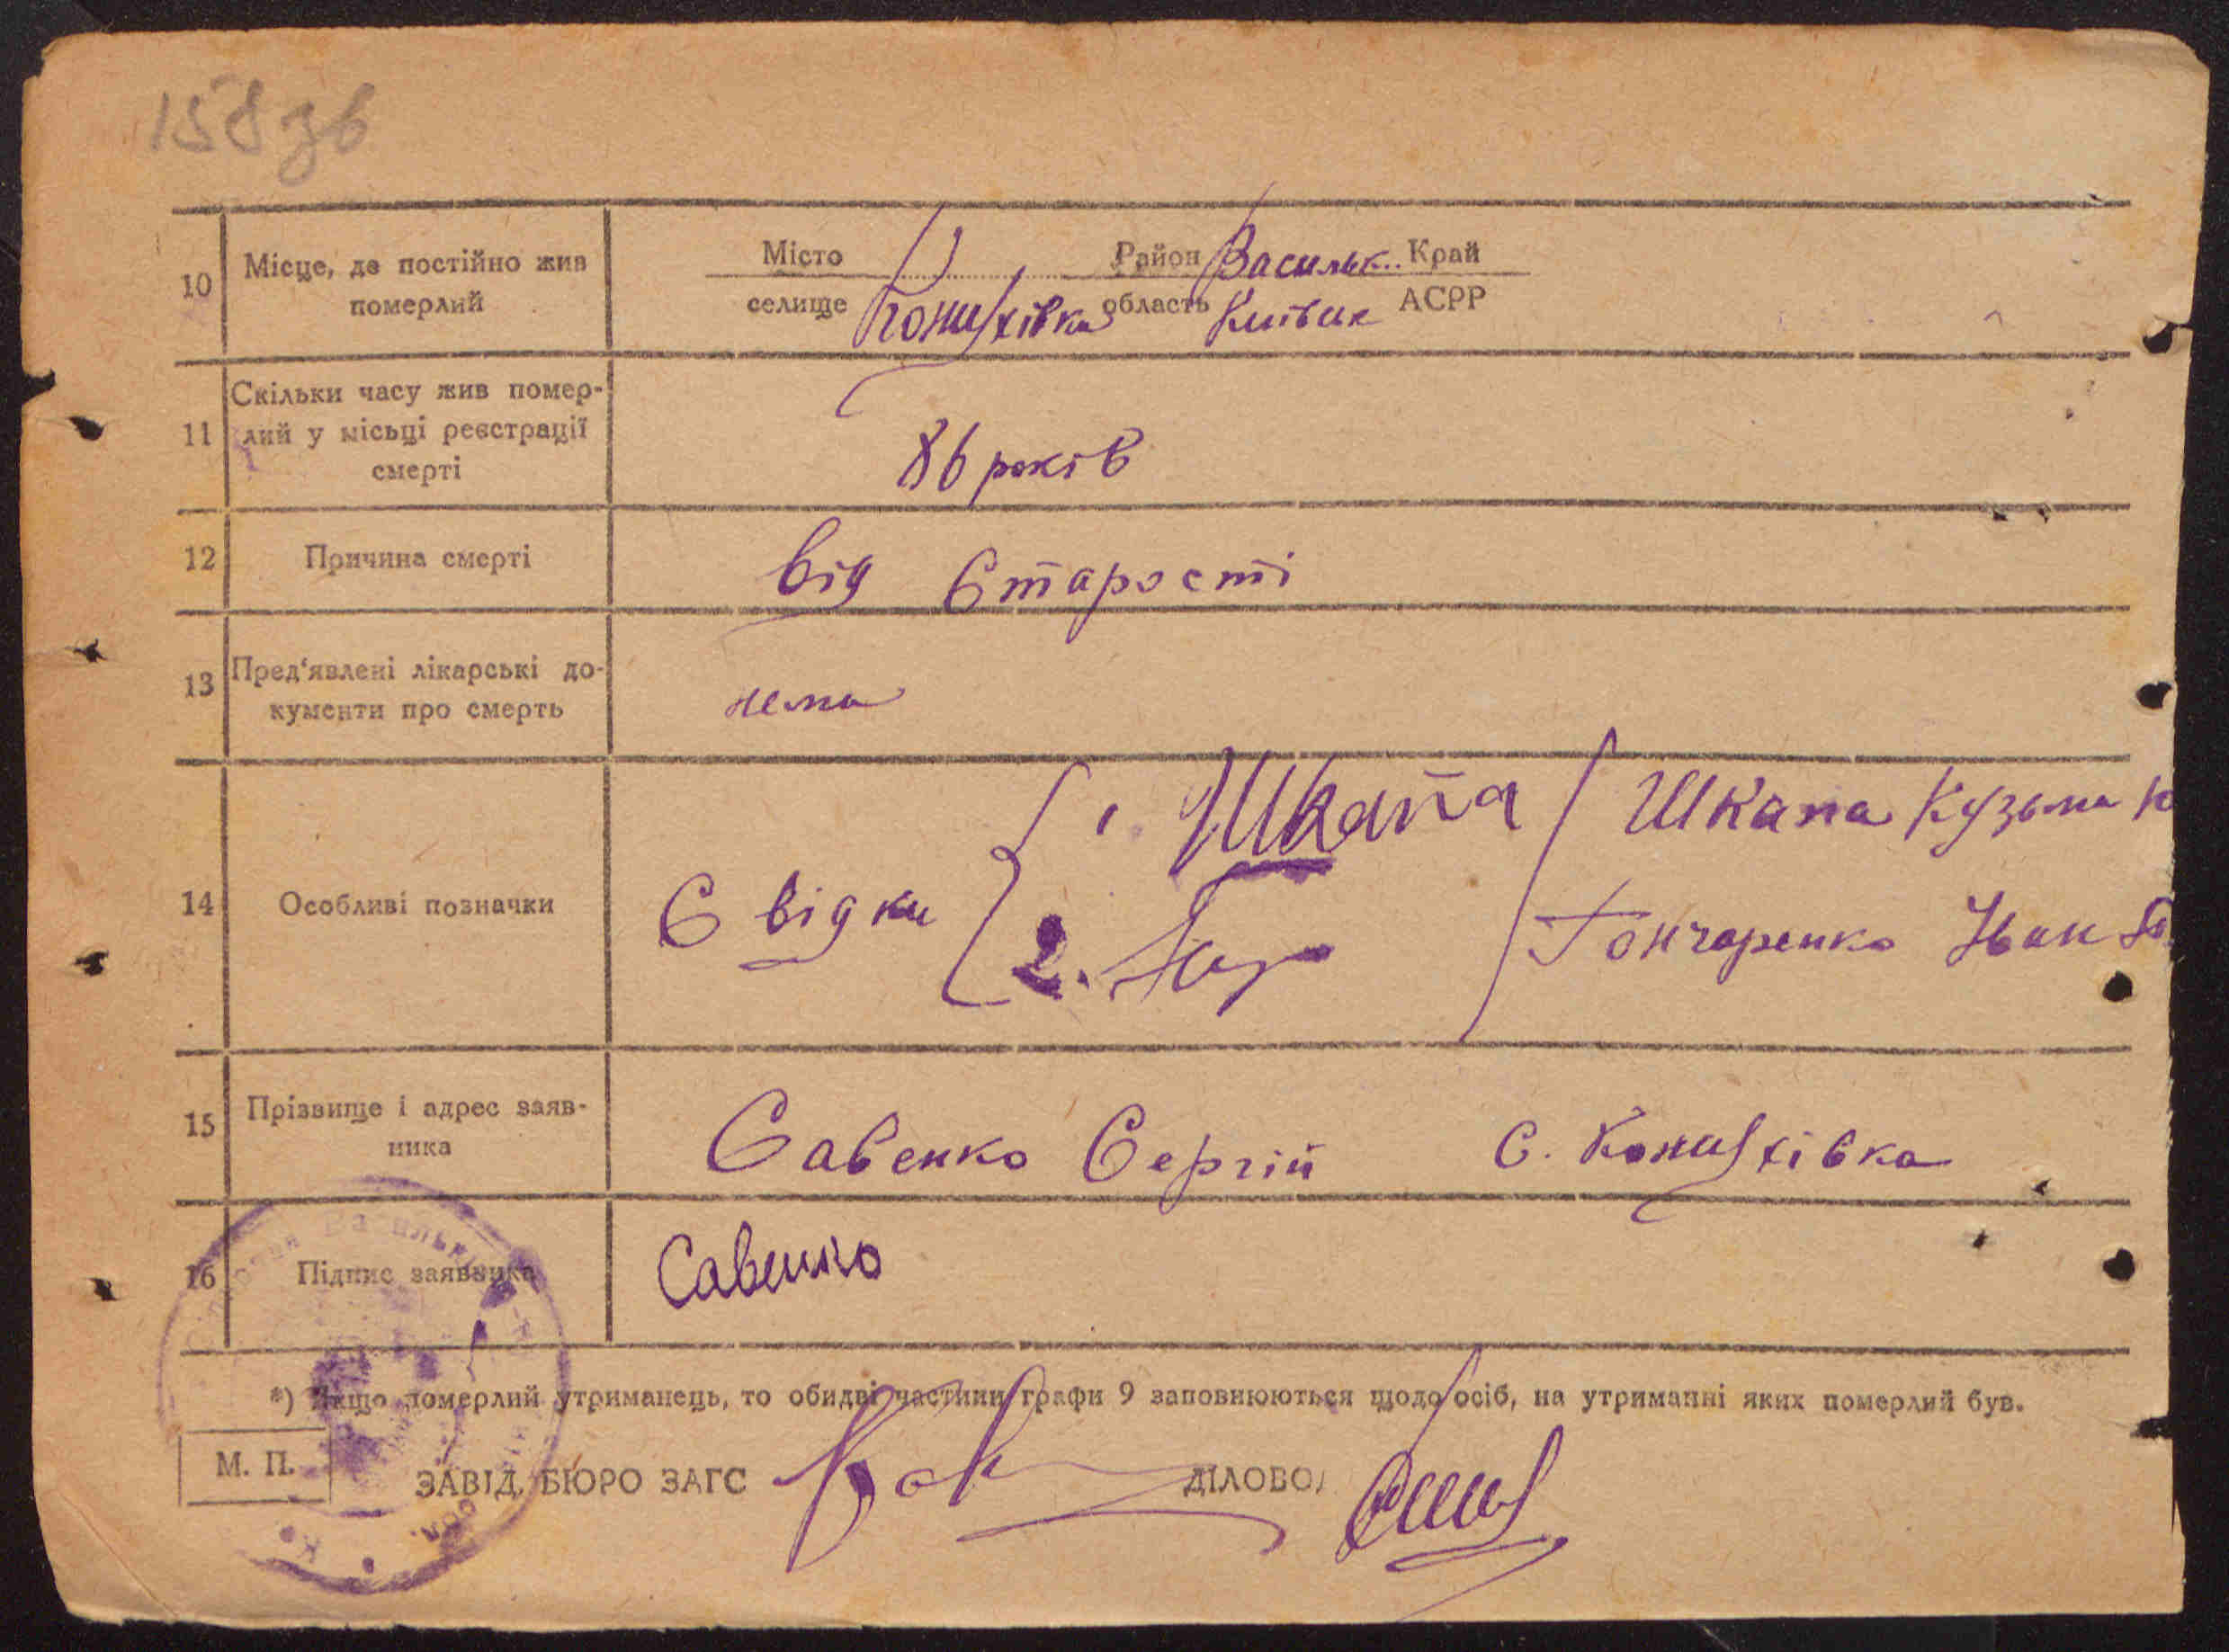 158 зв
10 Місце, де постійно жив Місто Район Васильк. Край
померлий селище Конищівка область Київськ АСРР
Скільки часу жив помер-
11 лий у місьці реєстрації 86 років
смерті
12 Причина смерті від Старості
13 Пред'явлені лікарські до- нема
кументи про смерть
1. Шкапа Шкапа Кузьма
14 Особливі позначки Свідки
2. Гончаренко Іван
15 Прізвище і адрес заяв- Савенко Сергій С. Конищівка
ника
16 Підпис заявника Савенко
*) Якщо померлий утриманець, то обидві частини графи 9 заповнюються щодо осіб, на утриманні яких померлий був.
М. П. ЗАВІД. БЮРО ЗАГС ДІЛОВОД